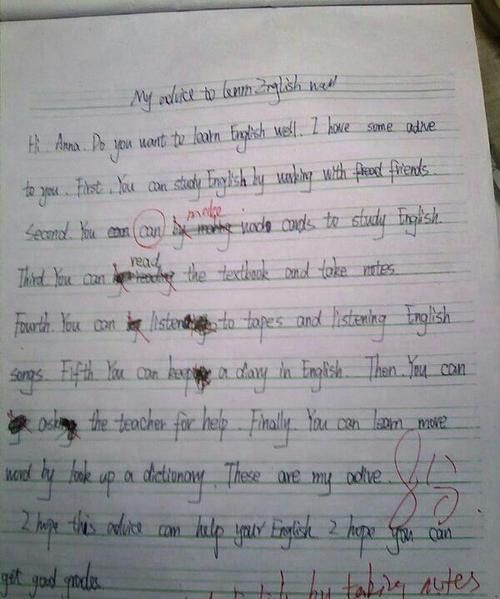 My advice to learn English well
Hi Anna. Do you want to learn English well. I have some adive
to you. First, You can study English by working with friends.
make
Second. You can word cards to study English.
read
Third. You can the textbook and take notes
Fourth. You can listen to tapes and listening English
songs. Fifth You can keep a diary in English. Then. You can
ask the teacher for help. Finally. You can learn more
word by look up a dictionary. These are my adive.
85
I hope this advice can help your English I hope you can
get good grades.
by taking notes